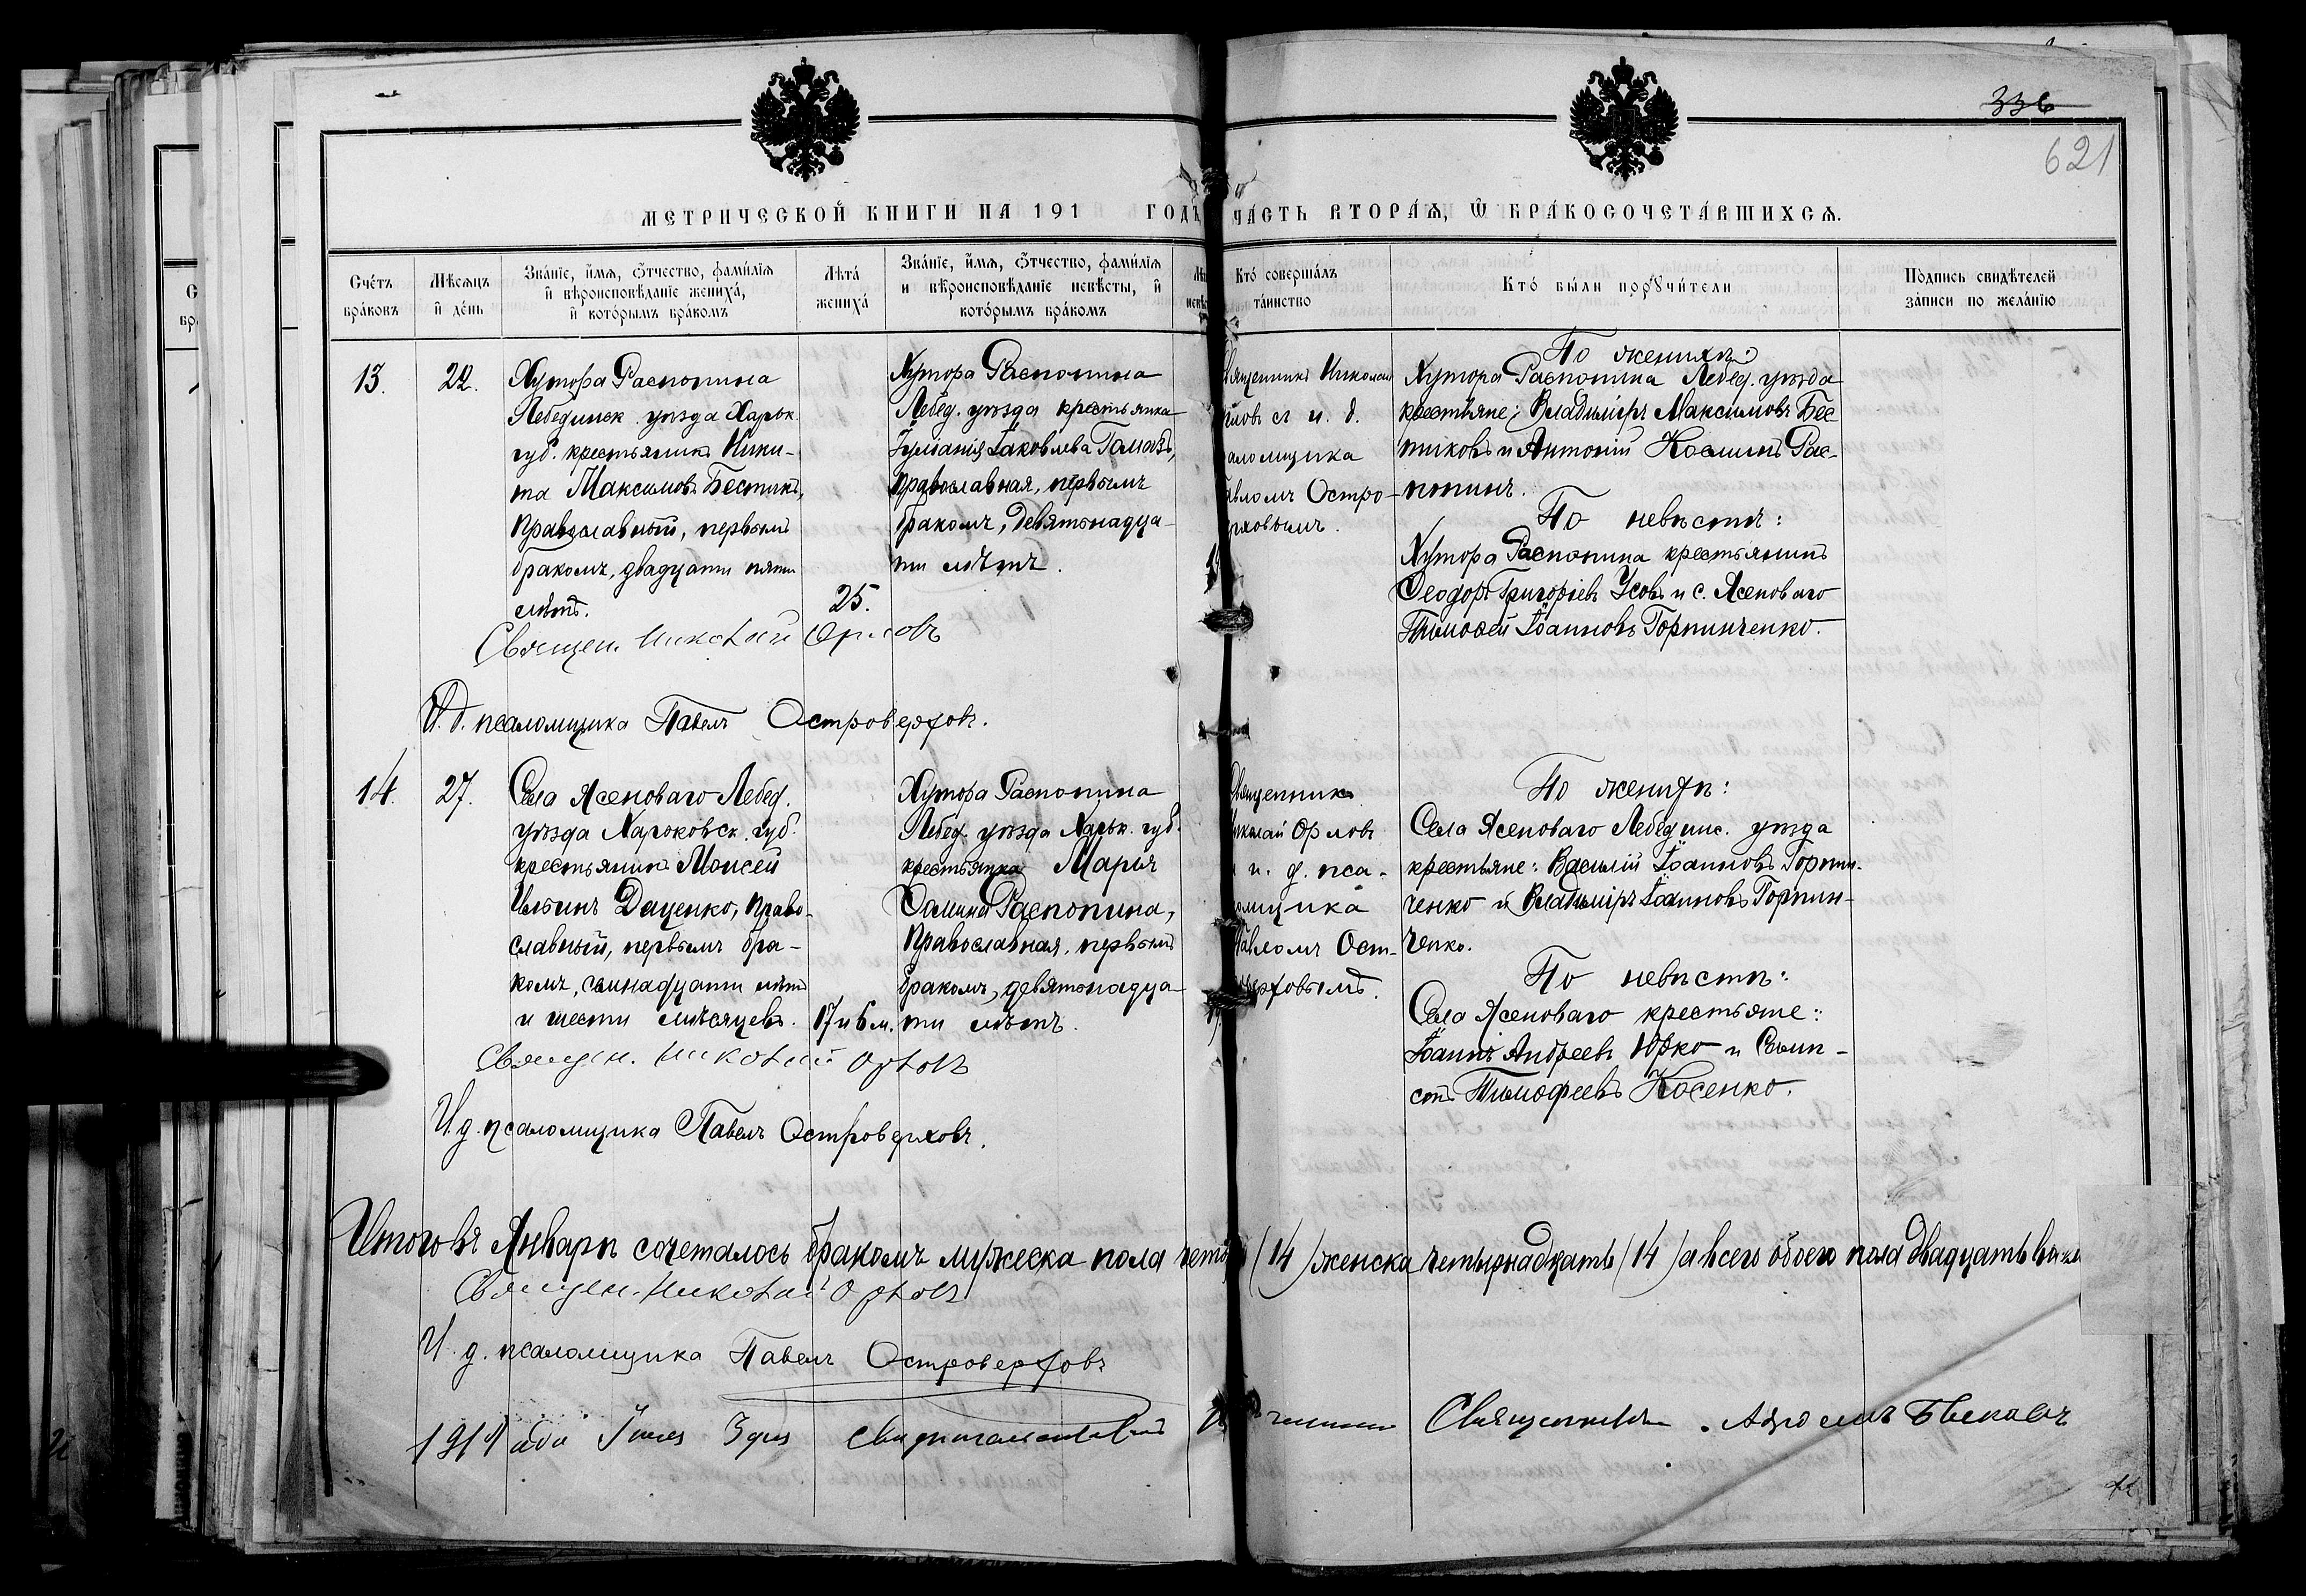 336
621
МЕТРИЧЕСКОЙ КНИГИ НА 191 ГОДЪ ЧАСТЬ ВТОРАЯ, Ѡ БРАКОСОЧЕТАВШИХСЯ.
Счётъ браковъ
Мѣсяцъ и день
Званіе, имя, отчество, фамилія и вѣроисповѣданіе жениха, и которымъ бракомъ
Лѣта жениха
Званіе, имя, отчество, фамилія и вѣроисповѣданіе невѣсты, и которымъ бракомъ
Кто совершалъ таинство
Кто были поручители
Подпись свидѣтелей записи по желанію
13.
22.
Хутора Распопина
Лебединск. уѣзда Харьк.
губ. крестьянинъ Ники-
та Максимовъ Бестикъ,
православный, первымъ
бракомъ, двадцати пяти
лѣтъ.
25.
Хутора Распопина
Лебед. уѣзда крестьянка
Іуліанія Іаковлева
православная, первымъ
бракомъ, девятнадца-
ти лѣтъ.
Священникъ Николай
Орловъ съ и. д.
псаломщика
Павломъ Остро-
верховымъ.
По женихѣ:
Хутора Распопина Лебед. уѣзда
крестьяне: Владиміръ Максимовъ Бес-
тиковъ и Антоній Косминъ Рас-
попинъ.
По невѣстѣ:
Хутора Распопина крестьянинъ
Ѳеодоръ Григоріевъ Усовъ и с. Ясеноваго
Тимоѳей Іоанновъ Горпинченко.
Священ. Николай Орловъ
И. д. псаломщика Павелъ Островерховъ.
14.
27.
Села Ясеноваго Лебед.
уѣзда Харьковск. губ.
крестьянинъ Моисей
Ильинъ Даценко, право-
славный, первымъ бра-
комъ, семнадцати лѣтъ
и шести мѣсяцевъ.
17 и 6 м.
Хутора Распопина
Лебед. уѣзда Харьк. губ.
крестьянка Марія
Распопина,
православная, первымъ
бракомъ, девятнадца-
ти лѣтъ.
Священникъ
Николай Орловъ
и. д. пса-
ломщика
Павломъ Ост-
верховымъ.
По женихѣ:
Села Ясеноваго Лебедин. уѣзда
крестьяне: Василій Іоанновъ Горпин-
ченко и Владиміръ Іоанновъ Горпин-
ченко.
По невѣстѣ:
Села Ясеноваго крестьяне:
Іоаннъ Андреевъ Юрко и
Тимофеевъ Косенко.
Священ. Николай Орловъ
И. д. псаломщика Павелъ Островерховъ.
Итого въ Январѣ сочеталось бракомъ мужеска пола (14) женска четырнадцать (14) а всего обоего пола двадцать
Священ. Николай Орловъ
И. д. псаломщика Павелъ Островерховъ
Священникъ